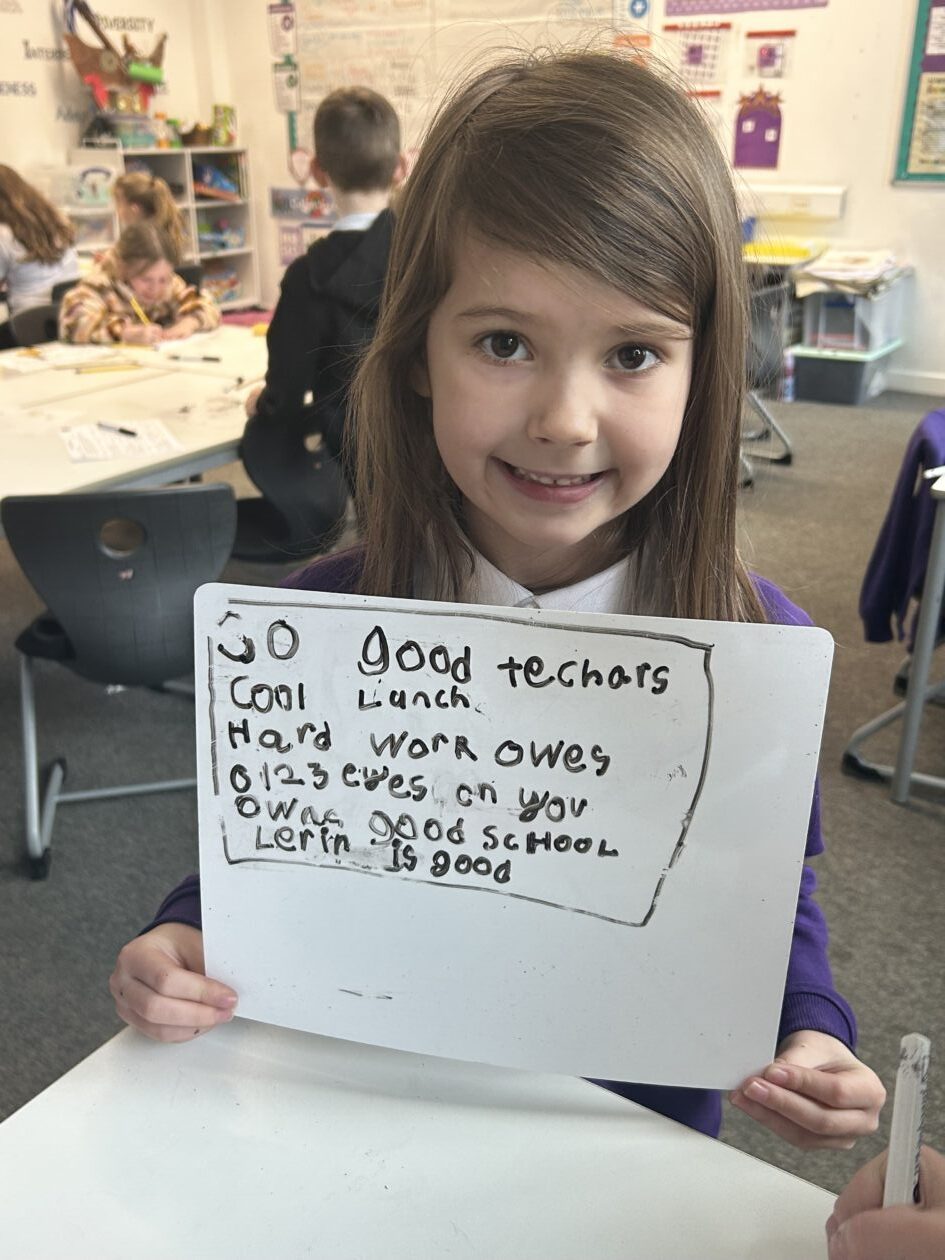 DIVERSITY
SO good techars
Cool Lunch
Hard work owes
0123 eyes on you
owas good SCHOOL
Lerin is good